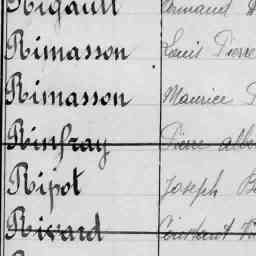 Rigault Armand
Rimasson Louis Pierre
Rimasson Maurice
Rinfray Pierre
Ripot Joseph
Rivard Constant